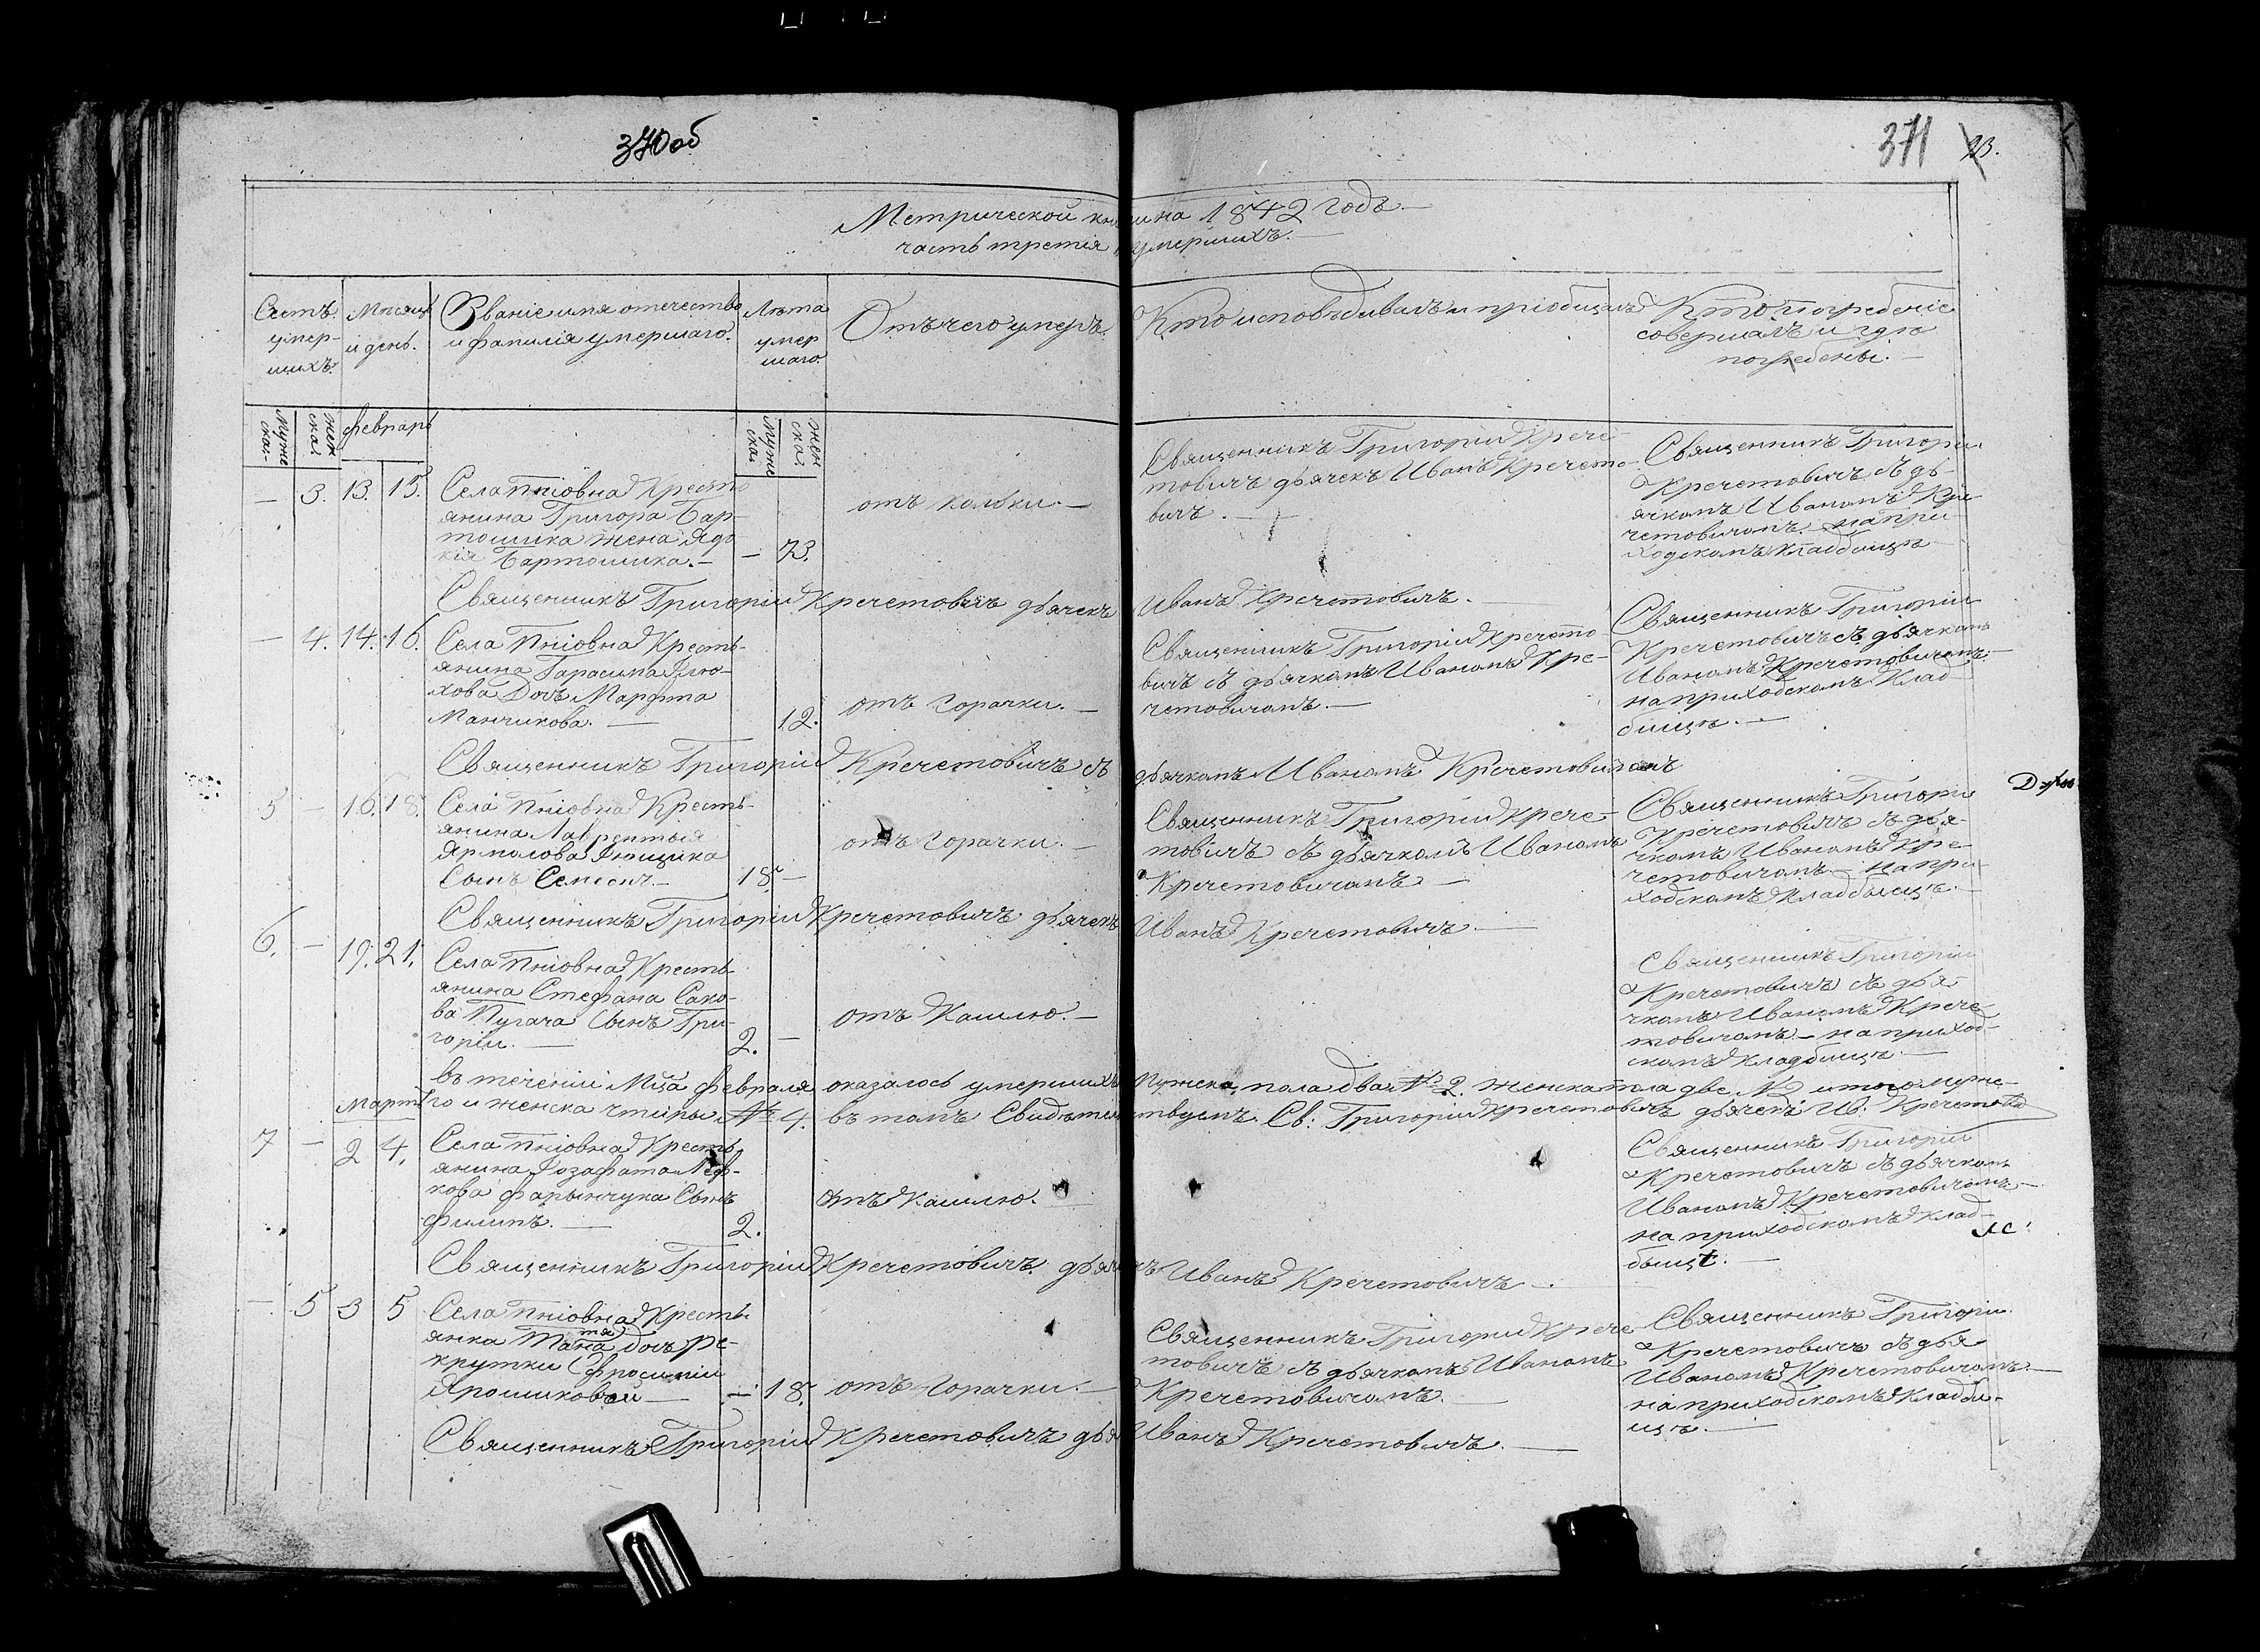 370об
371
23.
Метрической книги на 1842 годъ.
часть третія умершихъ.
Счетъ умершихъ.
Мѣсяцъ и день.
Званіе имя отечество
и фамилія умершаго.
Лѣта умершаго.
Отъ чего умеръ.
Кто исповѣдивалъ и пріобщалъ
Кто погребеніе
совершалъ и гдѣ
погребены.
Мужеска.
женска.
февраръ
Мужеска
женска.
— 3. 13. 15.
Села Пніовна Кресть
янина Григора Бар-
тошика жена Ядо
кія Бартошика. —
— 73.
отъ колѣки. —
Священникъ Григорій Крече-
товичъ дьячекъ Иванъ Кречето-
вичъ. —
Священникъ Григорій
Кречетовичъ съ дь-
ячкомъ Иваномъ Кре-
четовичомъ. на при
ходскомъ кладбищѣ
Священникъ Григорій Кречетовичъ дьячекъ Иванъ Кречетовичъ. —
— 4. 14. 16.
Села Пніовна Кресть-
янина Гарасима
Дочь Марфта
Манчикова. —
12.
отъ горачки. —
Священникъ Григорій Кречето-
вичъ съ дьячкомъ Иваномъ Кре-
четовичомъ. —
Священникъ Григорій
Кречетовичъ съ дьячкомъ
Иваномъ Кречетовичемъ. —
на приходскомъ Клад
бищѣ. —
Священникъ Григорій Кречетовичъ съ дьячкомъ Иваномъ Кречетовичомъ
5 — 16. 18.
Села Пніовна Кресть-
янина Лаврентыя
Ярмолова Ющика
Сынъ Семенъ. —
18. —
отъ горачки. —
Священникъ Григорій Крече-
товичъ съ дьячкомъ Иваномъ
Кречетовичомъ —
Священникъ Григорій
Кречетовичъ съ дья-
чкомъ Иваномъ Кре-
четовичомъ — на при-
ходскомъ кладбыщѣ. —
Священникъ Григорій Кречетовичъ дьячекъ Иванъ Кречетовичъ. —
6. — 19. 21.
Села Пніовна Кресть
янина Стефана Сако-
ва Пугача Сынъ Гри-
горій. —
2. —
отъ Кашлю. —
Священникъ Григорій
Кречетовичъ съ дья
чкомъ Иваномъ Крече
товичомъ — на приход-
скомъ кладбищѣ. —
въ теченіи Мца февраля оказалось умершихъ Мужска пола два № 2. женска пола две № 2 итого муже-
го и женска чтыры № 4. въ томъ Свидѣтельствуемъ Св: Григорій Кречетовичъ дьячекъ Ив: Кречетовъ
Мартъ
7 — 2 4.
Села Пніовна Кресть
янина Іозафата Леф-
кова Фарынчука Сынъ
Филипъ. —
2.
отъ Кашлю. —
Священникъ Григорій
Кречетовичъ съ дьячкомъ
Иваномъ Кречетовичомъ —
на приходскомъ клад-
быщѣ. —
Священникъ Григорій Кречетовичъ дьячекъ Иванъ Кречетовичъ —
— 5 3 5
Села Пніовна Кресть
янка дочь Ре-
крутки Ефросиніи
Ярошиковой —
— 18.
отъ Горачки. —
Священникъ Григорій Крече
товичъ съ дьячкомъ Иваномъ
Кречетовичомъ. —
Священникъ Григорій
Кречетовичъ съ дья
Иваномъ Кречетовичомъ —
на приходскомъ кладби-
щѣ. —
Священникъ Григорій Кречетовичъ дья Иванъ Кречетовичъ. —